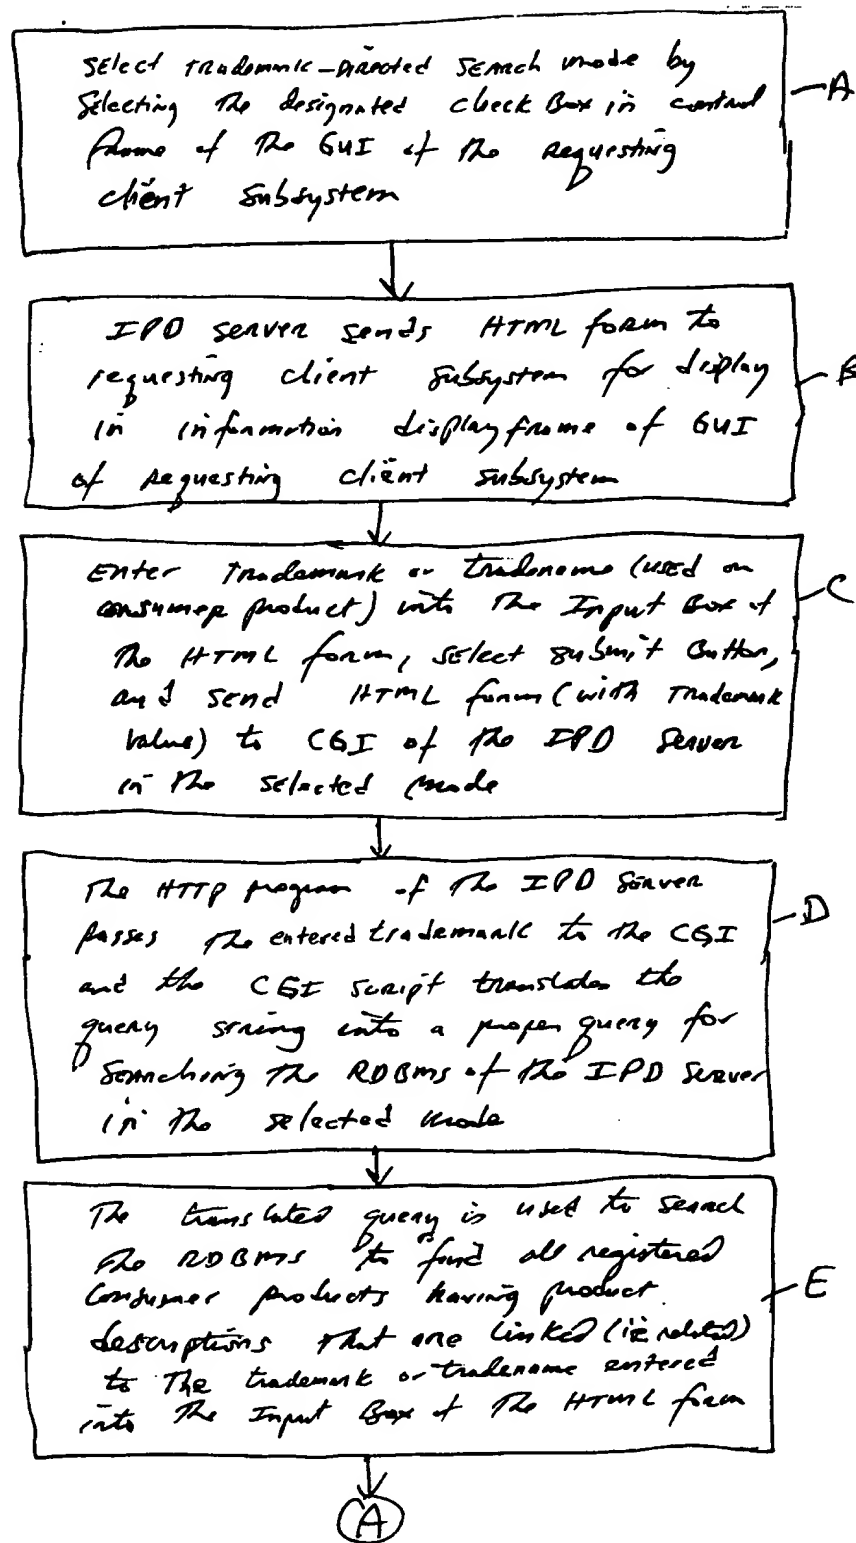 Select Trademark-Directed Search mode by
Selecting the designated check Box in control
frame of the GUI of the requesting
client Subsystem
A
IPD Server sends HTML form to
requesting client Subsystem for display
in information display frame of GUI
of requesting client Subsystem
B
Enter Trademark or tradename (used on
consumer product) into the Input Box of
the HTML form, select submit Button,
and send HTML form (with Trademark
Value) to CGI of the IPD Server
in the selected mode
C
The HTTP program of the IPD Server
passes the entered trademark to the CGI
and the CGI script translates the
query string into a proper query for
Searching the RDBMS of the IPD Server
in the selected mode
D
The translated query is used to search
the RDBMS to find all registered
Consumer products having product
descriptions that are linked (ie related)
to the trademark or tradename entered
into the Input Box of the HTML form
E
A